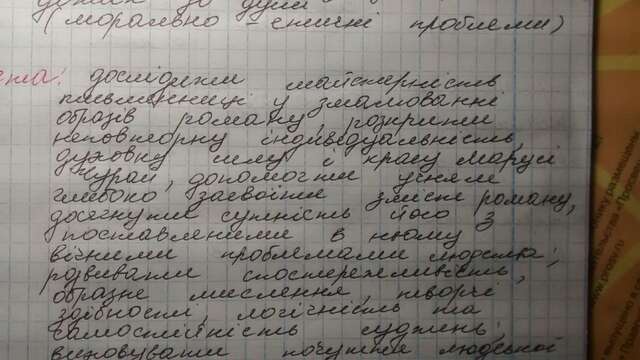 до душі
(морально - етичні проблеми)
ета: дослідити майстерність
письменниці у змалюванні
образів роману, розкрити
неповторну індивідуальність,
духовну силу і красу Марусі
Чурай, допомогти учням
глибоко засвоїти зміст роману,
досягнути сутність його з
поставленими в ньому
вічними проблемами людства;
розвивати спостережливість,
образне мислення, творчі
здібності, логічність та
самостійність суджень;
виховувати почуття людської